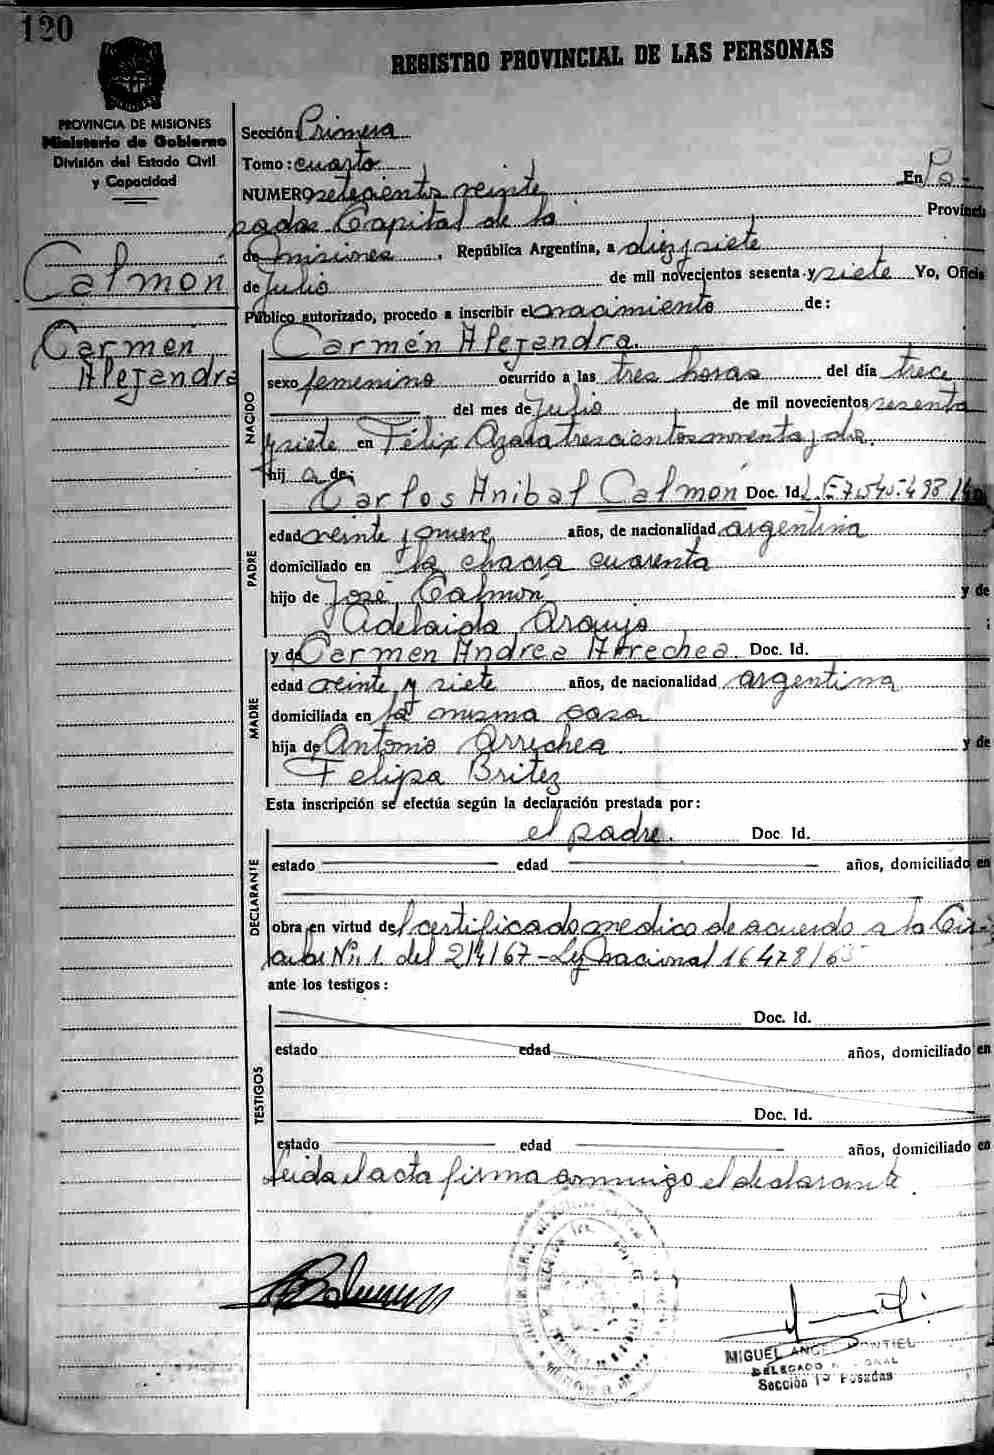 120
REGISTRO PROVINCIAL DE LAS PERSONAS
PROVINCIA DE MISIONES
Ministerio de Gobierno
División del Estado Civil
y Capacidad
Calmon
Carmen
Alejandra
Sección: Primera
Tomo: cuarto
NUMERO setecientos veinte En Po-
sadas Capital de la Provincia
de Misiones, República Argentina, a diez y siete
de Julio de mil novecientos sesenta y siete Yo, Oficial
Público autorizado, procedo a inscribir el nacimiento de:
NACIDO
Carmen Alejandra.
sexo femenino ocurrido a las tres horas del día trece
del mes de Julio de mil novecientos sesenta
y siete en Félix Azara trescientos noventa y dos.
hij a de:
PADRE
Carlos Anibal Calmon Doc. Id. L.E 7.545.498
edad veinte y nueve años, de nacionalidad argentina
domiciliado en la chacra cuarenta
hijo de José Calmon y de
Adelaida Araujo ;
MADRE
y de Carmen Andrea Arrechea. Doc. Id.
edad veinte y siete años, de nacionalidad argentina
domiciliada en la misma casa
hija de Antonio Arrechea y de
Felipa Britez
Esta inscripción se efectúa según la declaración prestada por:
DECLARANTE
el padre. Doc. Id.
estado edad años, domiciliado en
obra en virtud del certificado medico de acuerdo a la Cir-
cular Nº 1. del 2/4/67 - Ley Nacional 16478/65
ante los testigos:
TESTIGOS
Doc. Id.
estado edad años, domiciliado en
Doc. Id.
estado edad años, domiciliado en
Leida el acta firma conmigo el declarante.
MIGUEL ANGEL MONTIEL
DELEGADO
Sección 1ª Posadas